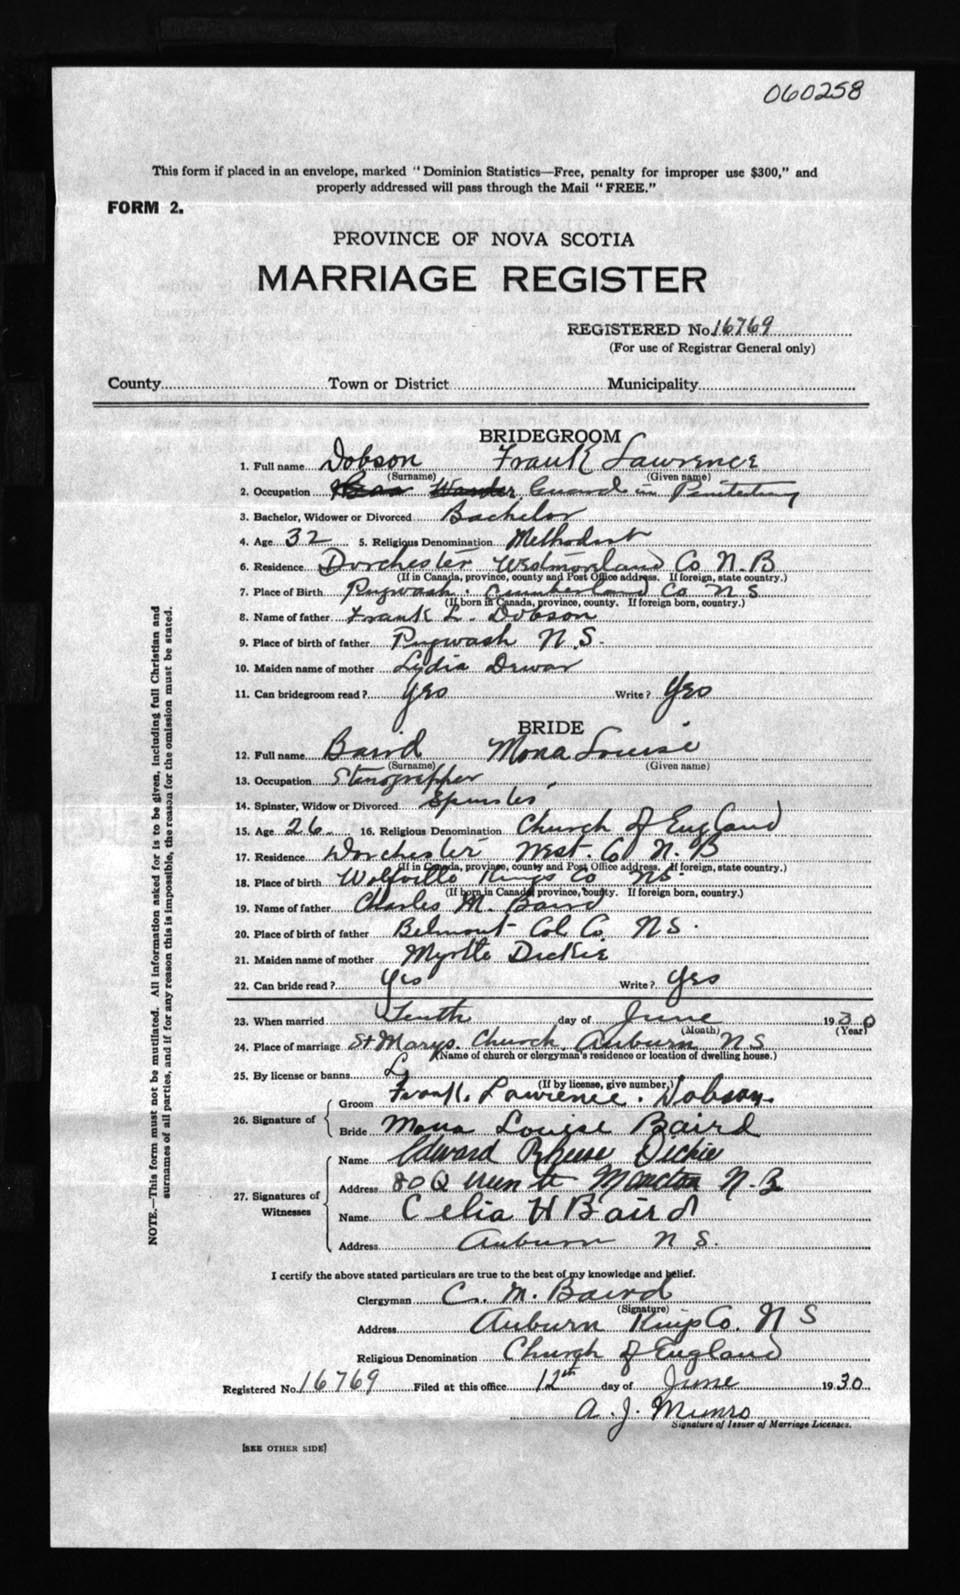 060258
This form if placed in an envelope, marked "Dominion Statistics—Free, penalty for improper use $300," and
properly addressed will pass through the Mail "FREE."
FORM 2.
PROVINCE OF NOVA SCOTIA
MARRIAGE REGISTER
REGISTERED No. 16769
(For use of Registrar General only)
County Town or District Municipality
BRIDEGROOM
1. Full name Dobson Frank Lawrence
(Surname) (Given name)
2. Occupation Guard in Penitentiary
3. Bachelor, Widower or Divorced Bachelor
4. Age 32 5. Religious Denomination Methodist
6. Residence Dorchester Westmorland Co N.B
(If in Canada, province, county and Post Office address. If foreign, state country.)
7. Place of Birth Pugwash. Cumberland Co N S
(If born in Canada, province, county. If foreign born, country.)
8. Name of father Frank L. Dobson
9. Place of birth of father Pugwash N.S.
10. Maiden name of mother Lydia Dewar
11. Can bridegroom read? Yes Write? Yes
BRIDE
12. Full name Baird Mona Louise
(Surname) (Given name)
13. Occupation Stenographer
14. Spinster, Widow or Divorced Spinster
15. Age 26 16. Religious Denomination Church of England
17. Residence Dorchester West. Co N. B
(If in Canada, province, county and Post Office address. If foreign, state country.)
18. Place of birth Wolfville Kings Co NS.
(If born in Canada, province, county. If foreign born, country.)
19. Name of father Charles M. Baird
20. Place of birth of father Belmont Col Co. NS.
21. Maiden name of mother Myrtle Dickie
22. Can bride read? Yes Write? Yes
23. When married Tenth day of June 1930
(Month) (Year)
24. Place of marriage St Marys Church, Auburn NS
(Name of church or clergyman's residence or location of dwelling house.)
25. By license or banns L
(If by license, give number.)
26. Signature of
Groom Frank. Lawrence. Dobson
Bride Mona Louise Baird
27. Signatures of Witnesses
Name Edward Dickie
Address 80 Moncton N.B
Name Celia H Baird
Address Auburn N S.
I certify the above stated particulars are true to the best of my knowledge and belief.
Clergyman C. M. Baird
(Signature)
Address Auburn Kings Co. N S
Religious Denomination Church of England
Registered No. 16769 Filed at this office 12th day of June 1930
A. J. Munro
Signature of Issuer of Marriage Licenses.
[SEE OTHER SIDE]
NOTE.—This form must not be mutilated. All information asked for is to be given, including full Christian and
surnames of all parties, and if for any reason this is impossible, the reason for the omission must be stated.